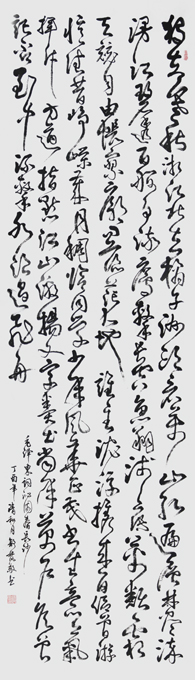 独立寒秋湘江北去橘子洲头看万山红遍层林尽染
漫江碧透百舸争流鹰击长空鱼翔浅底万类霜
天竞自由怅寥廓问苍茫大地谁主沉浮携来百侣曾游
忆往昔峥嵘岁月稠恰同学少年风华正茂书生意气
挥斥方遒指点江山激扬文字粪土当年万户侯曾
记否到中流击水浪遏飞舟
毛泽东词沁园春长沙
丁酉年清和月